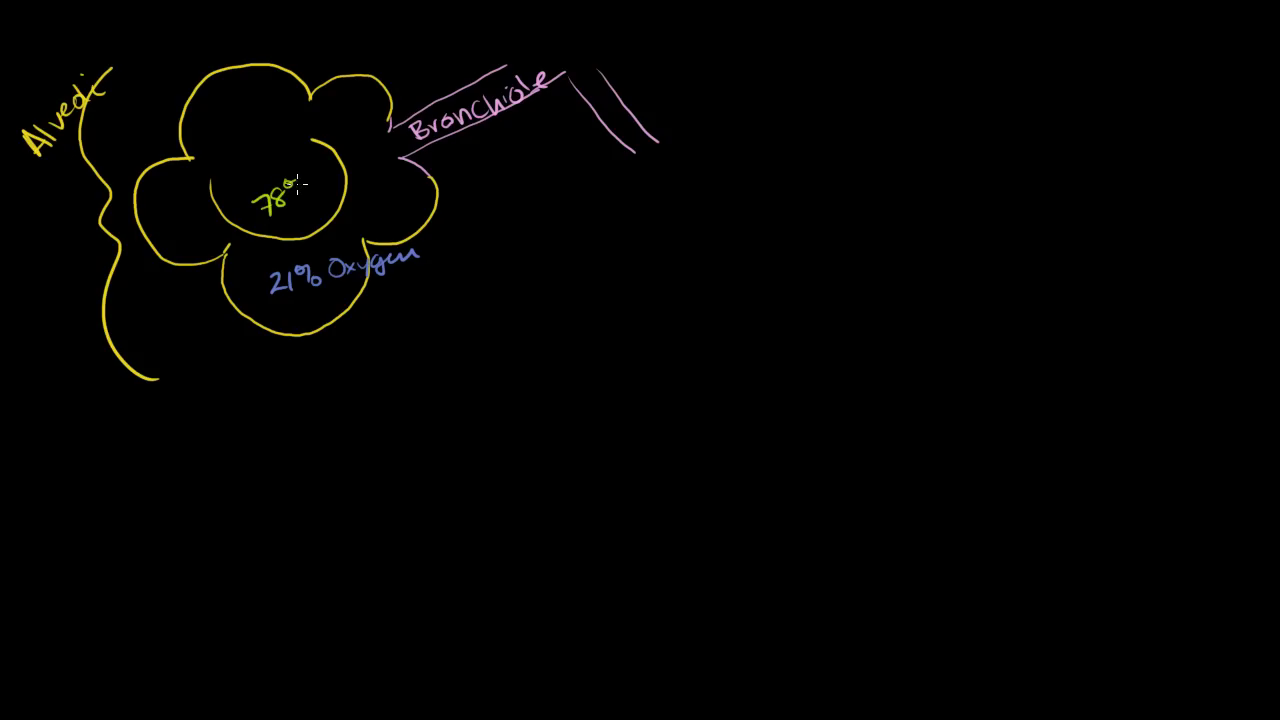 Alveoli
Bronchiole
78%
21% Oxygen